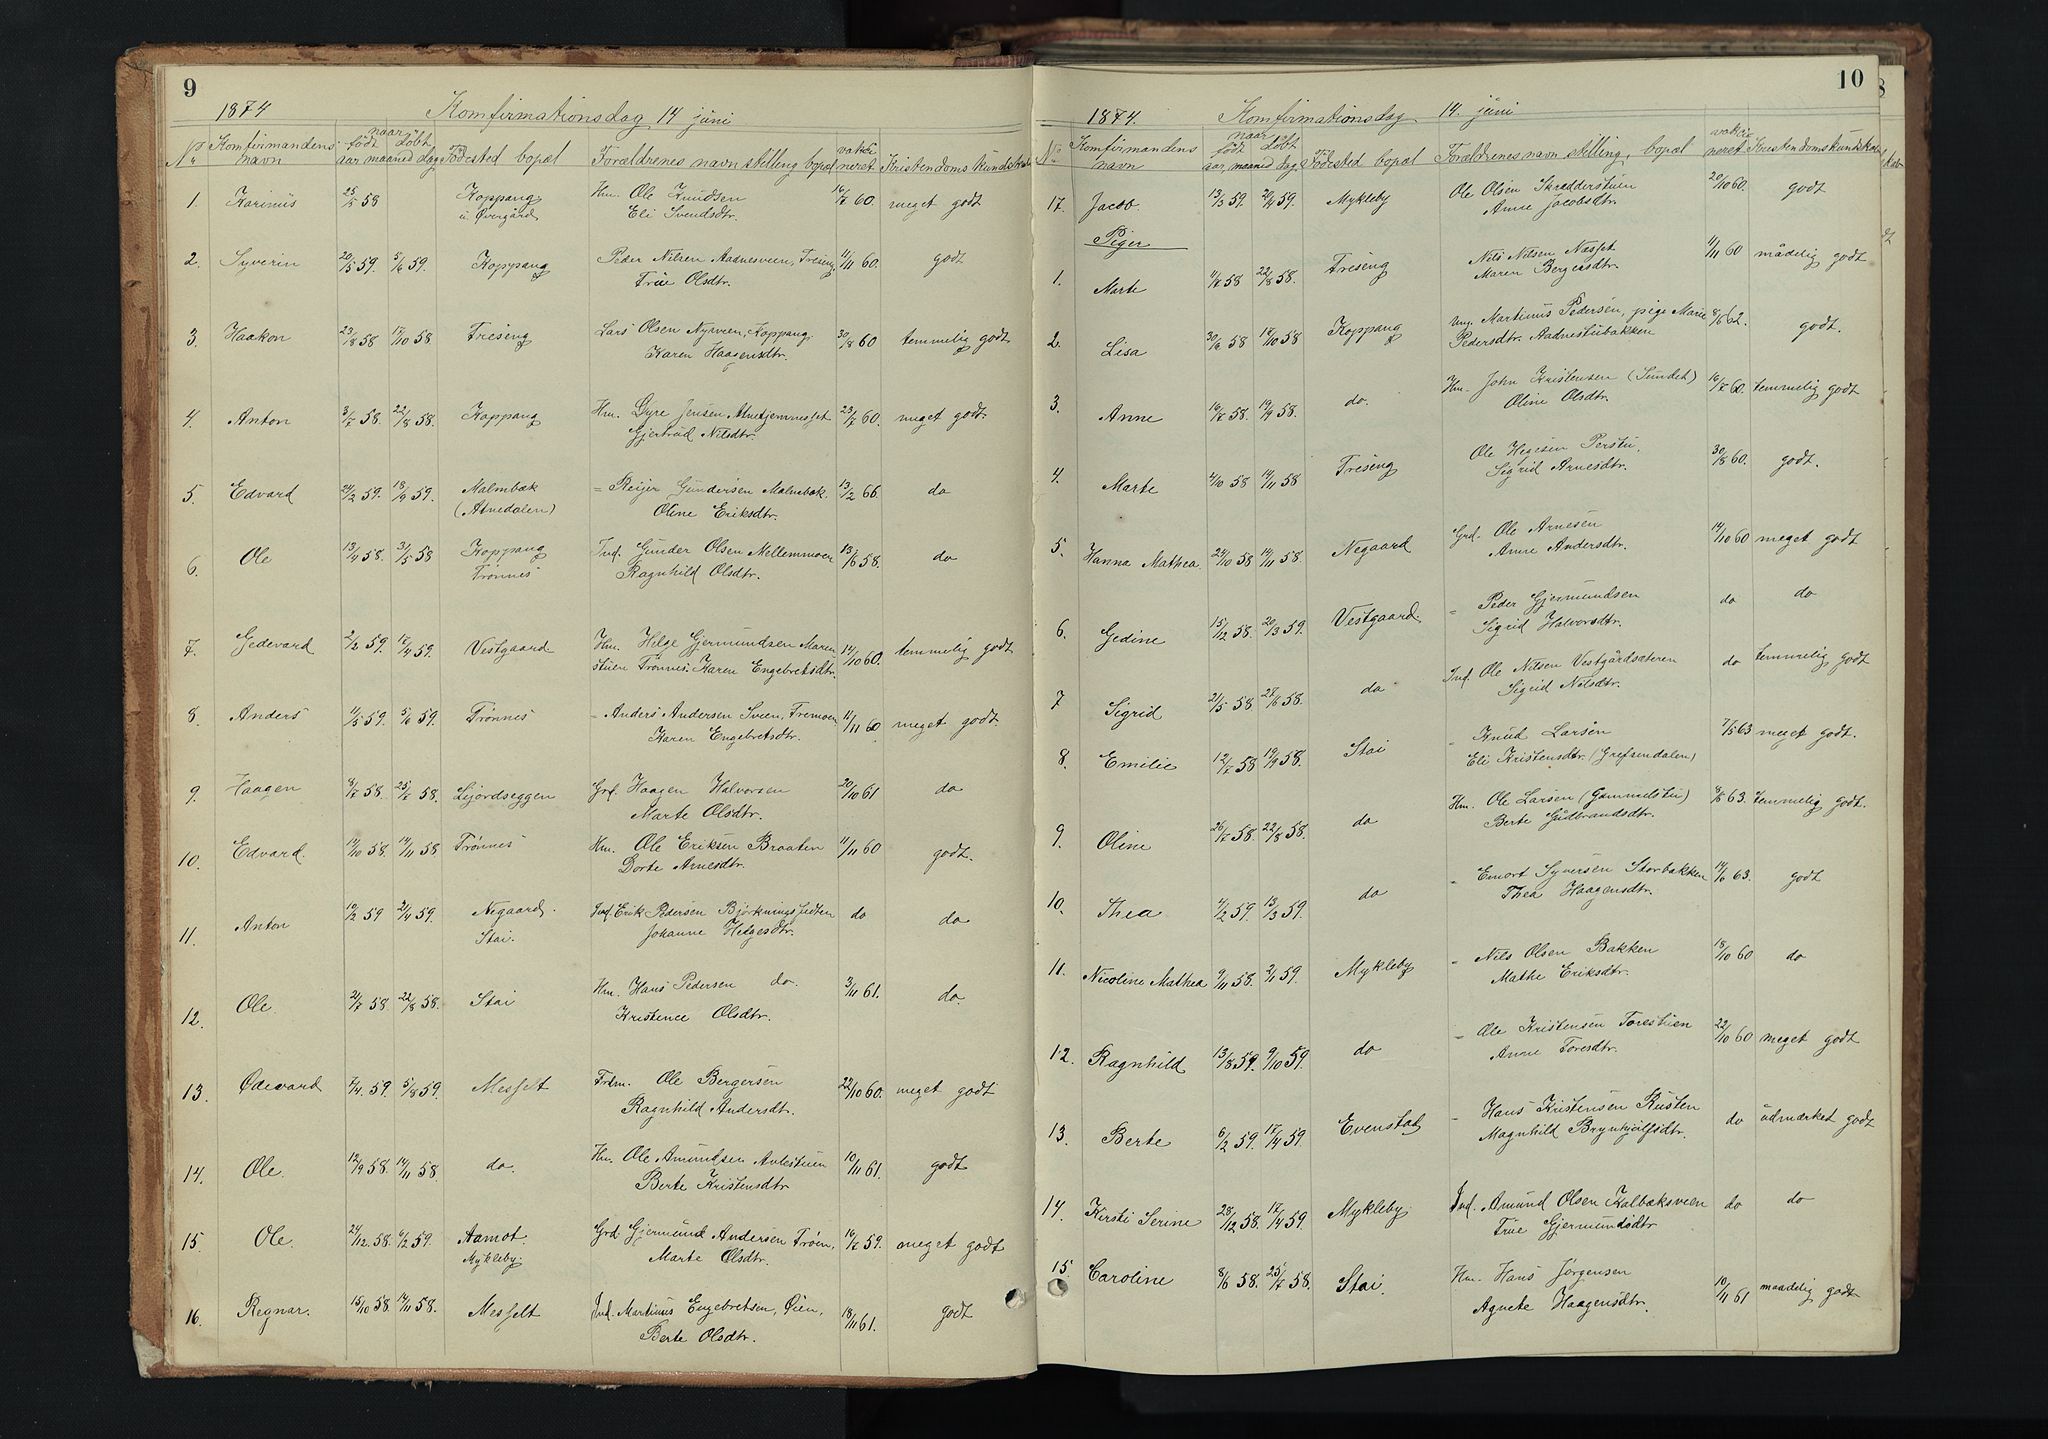 9
1874 Komfirmationsdag 14 juni
No. Komfirmandens navn naar född döbt aar, maaned dag Födested bopæl Forældrenes navn stilling bopæl vakcineret Kristendoms kundskab
1. Karinus 25/5 58 Koppang Hm. Ole Knudsen 16/7 60. meget godt
u. Øvergård Eli Svendsdtr.
2. Syverin 20/5 59. 5/6 59. Koppang Peder Nilsen Aadnesveen, Treseng 11/11 60. godt
Frue Olsdtr.
3. Haakon 23/8 58 17/10 58 Treseng Lars Olsen Nyveen, Koppang 30/8 60 temmelig godt
Karen Haagensdtr.
4. Anton 3/7 58. 22/8 58. Koppang Hm. Gyre Jensen 23/7 60. meget godt.
Gjertrud Nilsdtr.
5. Edvard 24/2 59. 18/9 59. Malmbæk = Reijer Gundersen Malmbæk. 13/2 66. do
(Atnedalen) Oline Eriksdtr.
6. Ole 13/4 58. 31/5 58 Koppang Ind. Gunder Olsen Mellemmoen 13/6 58. do
Trönnes Ragnhild Olsdtr.
7. Gedevard 2/2 59. 17/4 59. Vestgaard Hm. Helge Gjermundsen Maren 14/10 60. temmelig godt
stuen Trönnes. Karen Engebretsdtr.
8. Anders 11/5 59. 5/6 59. Trönnes - Anders Andersen Sveen, Tremoen 11/11 60 meget godt.
Karen Engebretsdtr.
9. Haagen 8/7 58. 25/7 58. Lijordseggen Grd. Haagen Halvorsen 20/10 61 do
Marte Olsdtr.
10. Edvard. 14/10 58. 14/11 58 Trönnes Hm. Ole Eriksen Braaten 11/11 60 godt.
Dorte Arnesdtr.
11. Anton 19/2 59 2/4 59. Negaard. Ind. Erik Pedersen do do
Stai. Johanne Helgesdtr.
12. Ole. 21/7 58. 22/8 58. Stai Hm. Hans Pedersen do. 3/11 61. do.
Kristence Olsdtr.
13. Ødevard 7/4 59. 5/8 59. Messelt Frdm. Ole Bergersen 22/10 60. meget godt
Ragnhild Andersdt.
14. Ole. 12/9 58. 14/11 58 do. Hm. Ole Amundsen Avlestuen 10/11 61. godt
Berte Kristensdtr
15. Ole. 24/12 58. 6/2 59. Aamot. Grd. Gjermund Andersen Tröen, 16/7 59. meget godt
Mykleby. Marte Olsdtr.
16. Regnar. 15/10 58. 17/11 58. Messelt Ind. Martinus Engebretsen, Øien, 18/11 61. godt
Berte Olsdtr.
10
1874. Komfirmationsdag 14. juni
No. Komfirmandens navn naar född döbt aar, maaned dag Födested bopæl Forældrenes navn stilling, bopæl vakcineret Kristendomskundskab
17. Jacob. 13/3 59. 20/4 59. Mykleby Ole Olsen Skrædderstuen 20/10 60. godt
Anne Jacobsdtr.
Piger
1. Marte 11/7 58 22/8 58. Treseng Nils Nilsen Næsset 11/11 60 mådelig godt
Maren Bergersdtr.
2. Lisa 30/6 58 17/10 58 Koppang Ung. Martinus Pedersen, pige Marie 8/6 62. godt.
Pedersdtr. Aadnestubakken
3. Anne 16/7 58. 19/9 58. do. Hm. John Kristensen (Sundet) 16/7 60. temmelig godt
Oline Olsdtr.
4. Marte 4/10 58 14/11 58 Treseng Ole Hegesen Perstu, 30/8 60. godt.
Sigrid Arnesdtr.
5. Hanna Mathea. 24/10 58 14/11 58. Negaard Grd. Ole Arnesen 14/10 60 meget godt
Anne Andersdtr.
6. Gedine 15/12 58. 20/3 59. Vestgaard. = Peder Gjermundsen do do
Sigrid Halvorsdtr.
7 Sigrid 21/5 58 27/6 58. do Ind. Ole Nilsen Vestgårdsæteren do temmelig godt
Sigrid Nilsdtr.
8. Emilie 12/7 58 19/9 58. Stai " Knud Larsen 7/5 63 meget godt.
Eli Kristensdtr. (Grefsendalen)
9. Oline 26/7 58. 22/8 58. do Hm. Ole Larsen (Gammelstu) 8/5 63. temmelig godt.
Berte Gudbrandsdtr.
10. Thea 4/2 59. 13/3 59. do " Emort Syversen Storbakken 14/6 63. godt
Thea Haagensdtr.
11. Nicoline Mathea 9/11 58. 2/1 59. Mykleby " Nils Olsen Bakken 18/10 60 do
Mathe Eriksdtr.
12. Ragnhild 13/8 59. 9/10 59 do = Ole Kristensen Torestuen 22/10 60 meget godt
Anne Toresdtr.
13. Berte 6/2 59. 17/4 59. Evenstad - Hans Kristensen Rusten do udmærket godt
Magnhild Brynhjolfsdtr.
14. Kirsti Serine 28/12 58. 17/4 59. Mykleby. Ind. Amund Olsen Kalbæksveen do do
Frue Gjermundsdtr
15. Caroline 8/6 58. 25/7 58. Stai. Hm. Hans Jörgensen 10/11 61 maadelig godt
Agnete Haagensdtr.